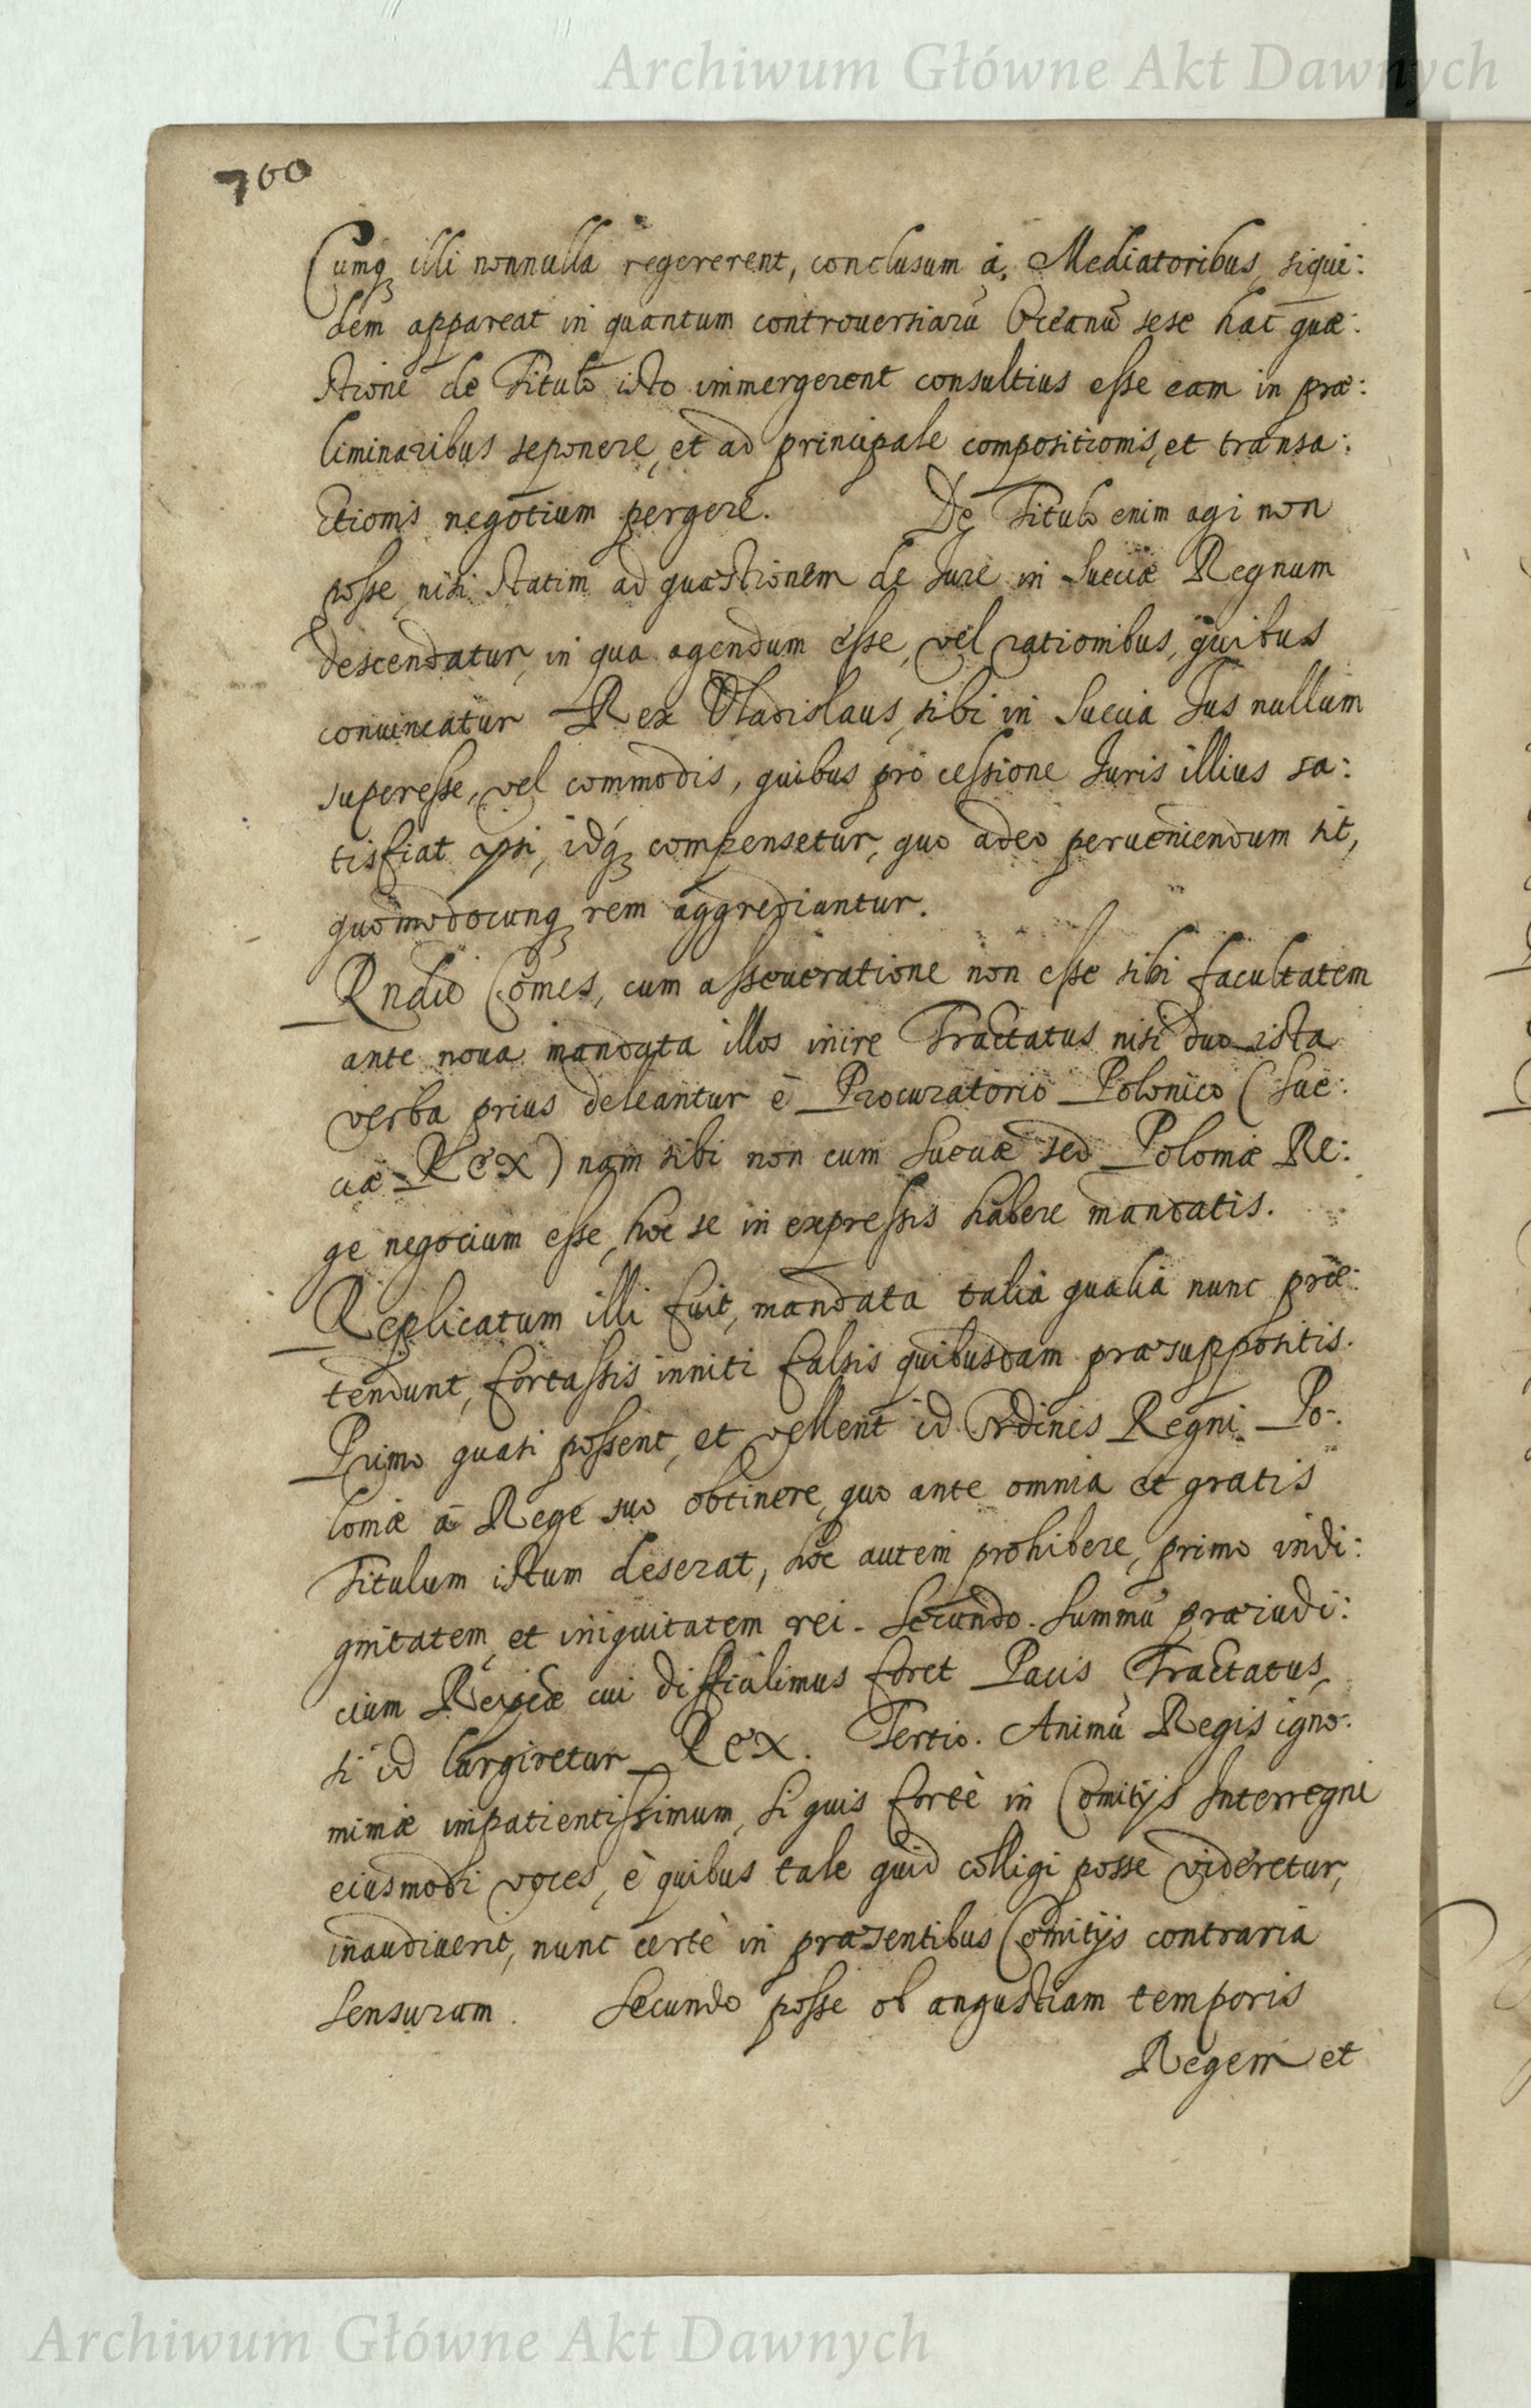 Archiwum Główne Akt Dawnych
700
Cumq; illi nonnulla regererent, conclusum à Mediatoribus, siqui:
dem appareat in quantum controuersiarū Oceanū sese hac quæ:
stione de Titulo isto immergerent consultius esse eam in præ:
liminaribus seponere, et ad principale compositionis, et transa:
ctionis negotium pergere. De Titulo enim agi non
posse, nisi statim ad quæstionem de Jure in Sueciæ Regnum
descendatur, in qua agendum esse, vel rationibus, quibus
conuincatur Rex Vladislaus, sibi in Suecia Jus nullum
superesse, vel commodis, quibus pro cessione Juris illius sa:
tisfiat ipsi, idq; compensetur, quo adeo perueniendum sit,
quomodocunq; rem aggrediantur.
Rndit Comes, cum asseueratione non esse sibi facultatem
ante noua mandata illos inire Tractatus nisi duo ista
verba prius deleantur è Procuratorio Polonico (Sue:
ciæ Rex) nam sibi non cum Sueciæ sed Poloniæ Re:
ge negocium esse, hoc se in expressis habere mandatis.
Replicatum illi fuit, mandata talia qualia nunc præ:
tendunt, fortassis inniti falsis quibusdam præsuppositis.
Primo quasi possent, et vellent id Ordines Regni Po:
loniæ à Rege suo obtinere, quo ante omnia et gratis
Titulum istum deserat, hoc autem prohibere, primo indi:
gnitatem, et iniquitatem rei. Secundo. Summū præiudi:
cium cui difficilimus foret Pacis Tractatus,
si id largiretur Rex. Tertio. Animū Regis igno:
miniæ impatientissimum, si quis fortè in Comitijs Interregni
eiusmodi voces, è quibus tale quid colligi posse videretur,
inaudiuerit, nunc certè in præsentibus Comitijs contraria
sensurum. Secundo posse ob angustiam temporis
Regem et
Archiwum Główne Akt Dawnych